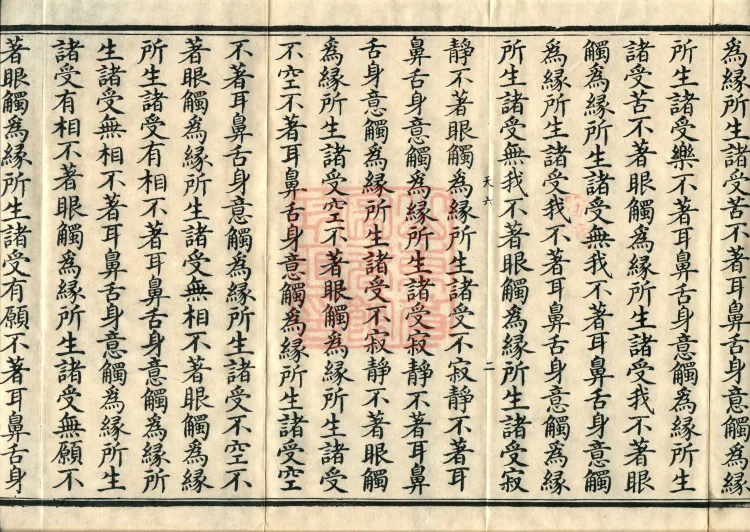 爲緣所生諸受苦不著耳鼻舌身意觸爲緣
所生諸受樂不著耳鼻舌身意觸爲緣所生
諸受苦不著眼觸爲緣所生諸受我不著眼
觸爲緣所生諸受無我不著耳鼻舌身意觸
爲緣所生諸受我不著耳鼻舌身意觸爲緣
所生諸受無我不著眼觸爲緣所生諸受寂
天六 二
靜不著眼觸爲緣所生諸受不寂靜不著耳
鼻舌身意觸爲緣所生諸受寂靜不著耳鼻
舌身意觸爲緣所生諸受不寂靜不著眼觸
爲緣所生諸受空不著眼觸爲緣所生諸受
不空不著耳鼻舌身意觸爲緣所生諸受空
不著耳鼻舌身意觸爲緣所生諸受不空不
著眼觸爲緣所生諸受無相不著眼觸爲緣
所生諸受有相不著耳鼻舌身意觸爲緣所
生諸受無相不著耳鼻舌身意觸爲緣所生
諸受有相不著眼觸爲緣所生諸受無願不
著眼觸爲緣所生諸受有願不著耳鼻舌身